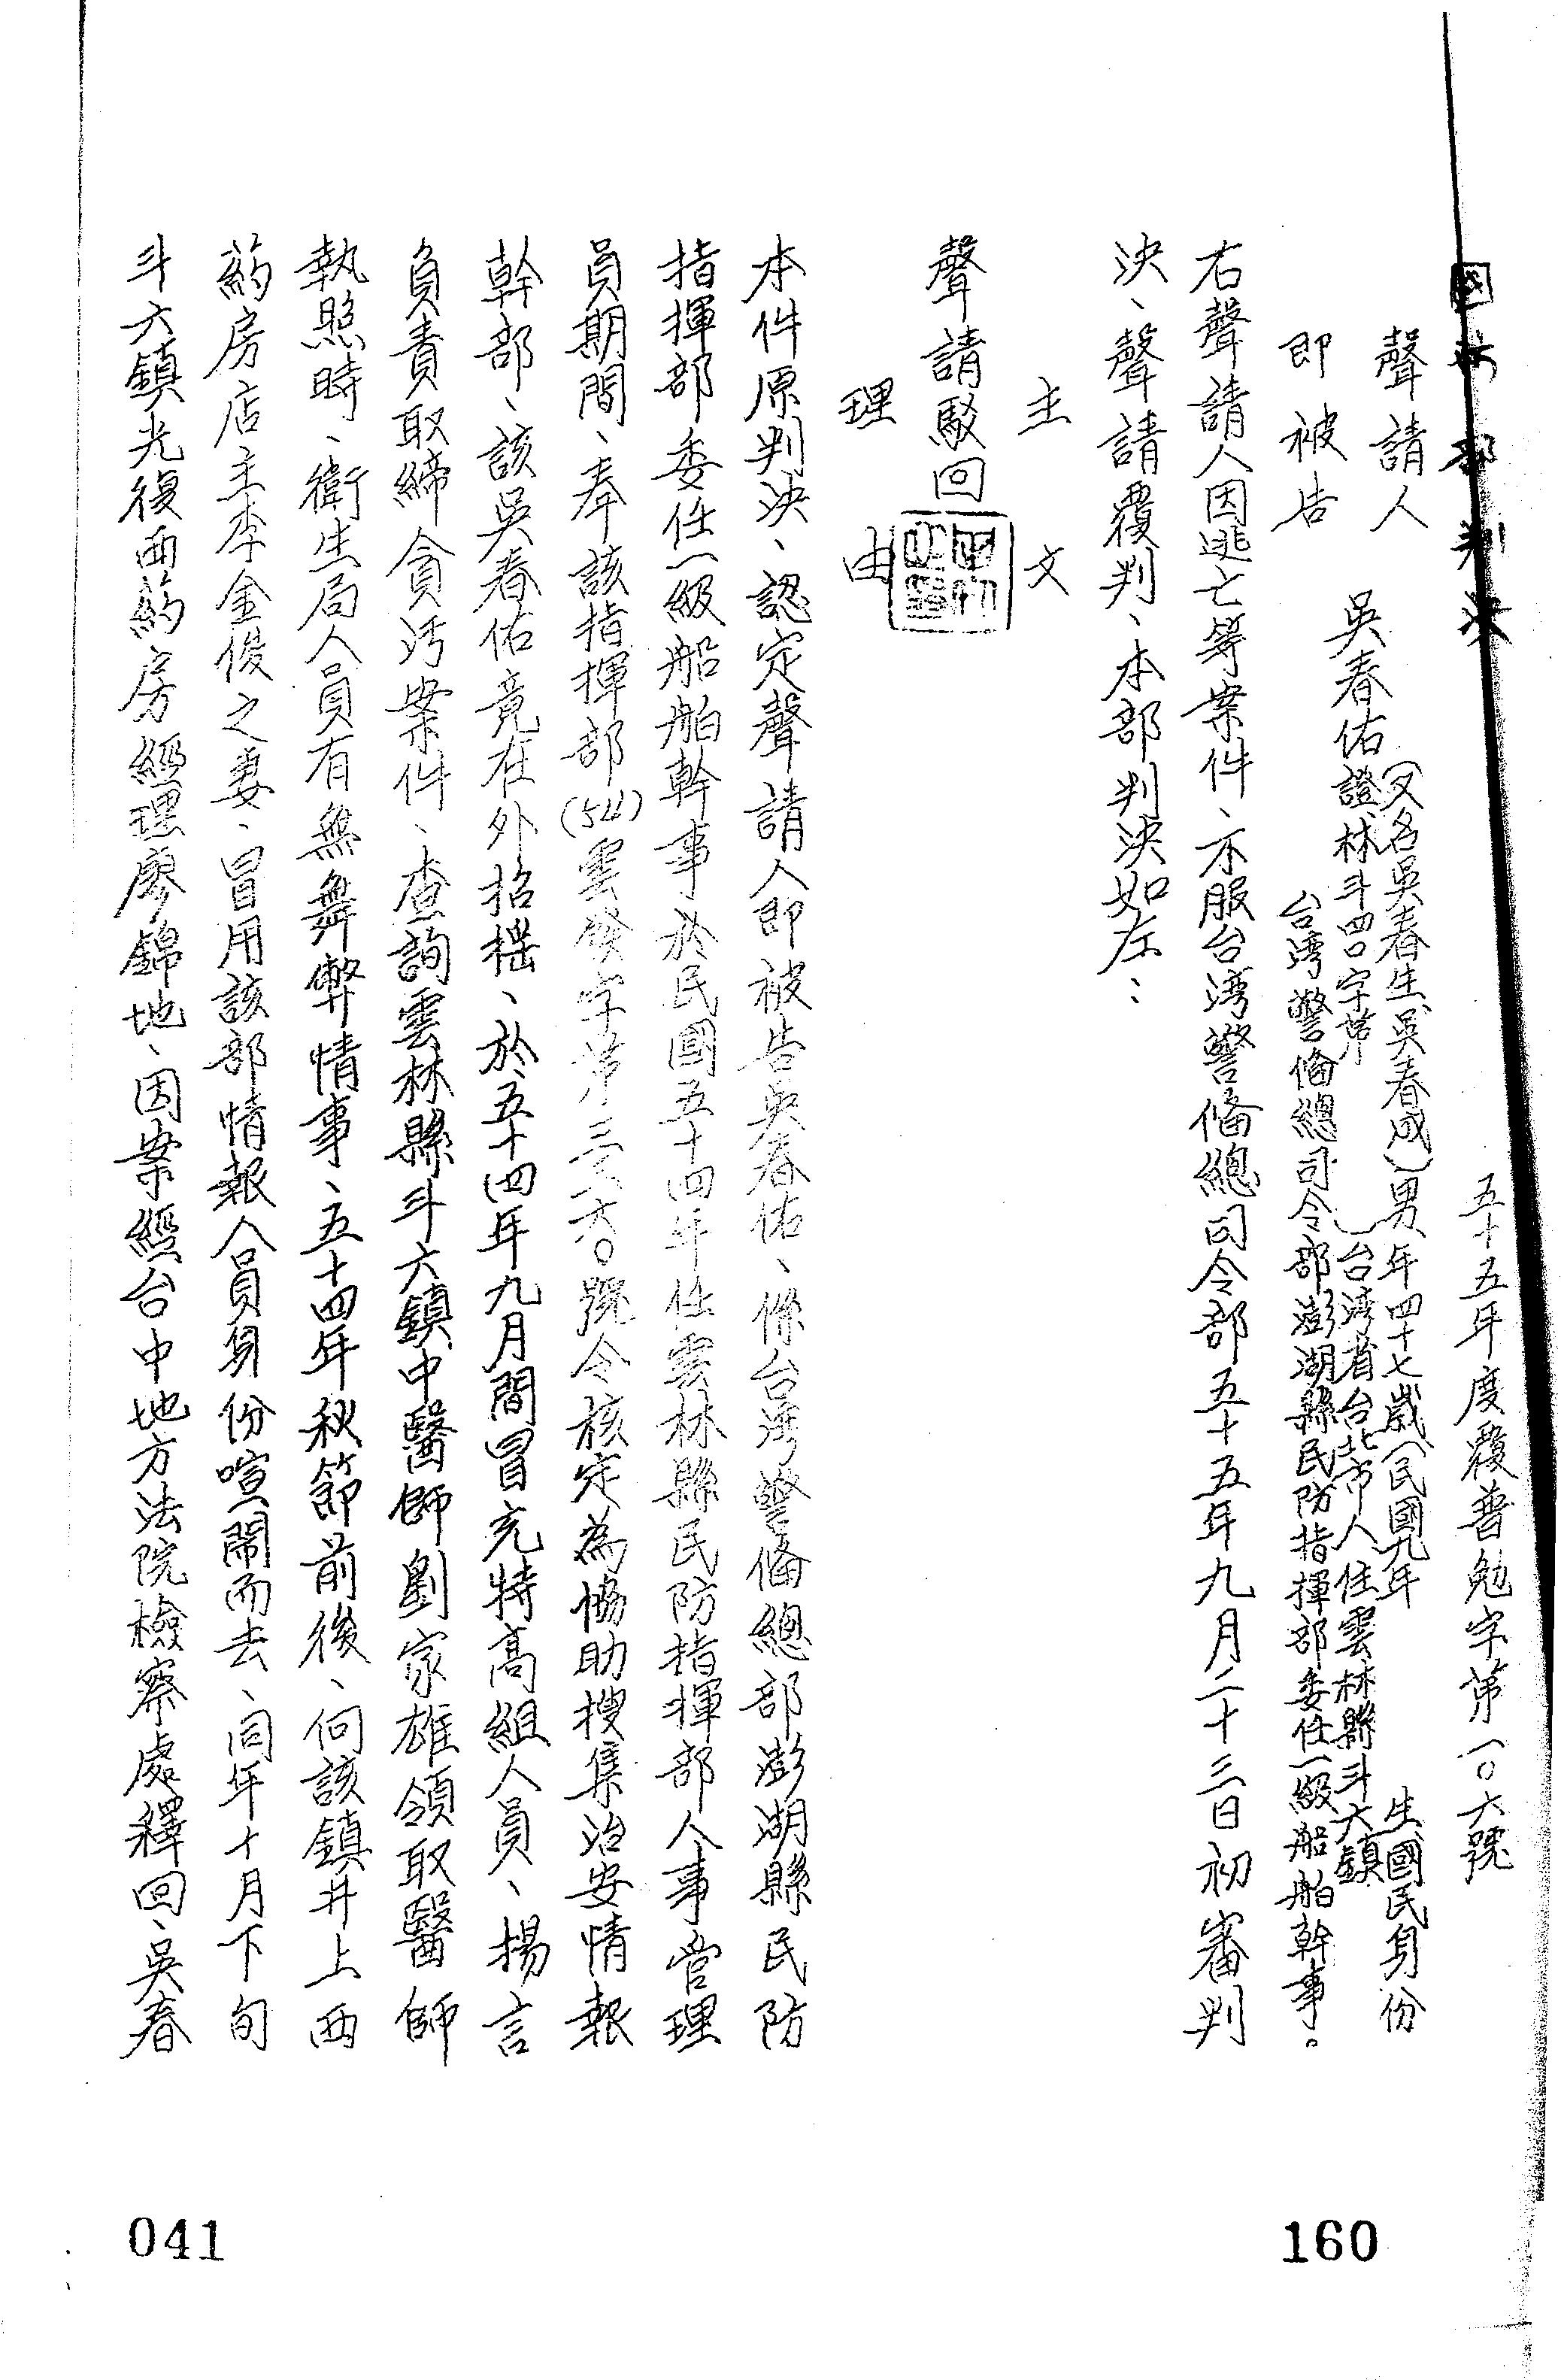 國防部判決
五十五年度覆普勉字第一〇六號
聲請人
即被告
吳春佑
(又名吳春生、吳春成)男年四十七歲(民國九年 生國民身份
證林斗四〇字第 )台湾省台北市人住雲林縣斗六鎮
台湾警俻總司令部澎湖縣民防指揮部委任一級船舶幹事。
右聲請人因逃亡等案件、不服台湾警俻總司令部五十五年九月二十三日初審判
決、聲請覆判、本部判決如左：
主文
聲請駁回
理由
本件原判決、認定聲請人即被告吳春佑、係台湾警俻總部澎湖縣民防
指揮部委任一級船舶幹事於民國五十四年任雲林縣民防指揮部人事管理
員期間、奉該指揮部(54)雲 字第三 六〇號令核定為協助搜集治安情報
幹部、該吳春佑竟在外招搖、於五十四年九月間冒充特高組人員、揚言
負責取締貪污案件、查詢雲林縣斗六鎮中醫師劉家雄領取醫師
執照時、衛生局人員有無舞弊情事、五十四年秋節前後、向該鎮井上西
葯房店主李金俊之妻、冒用該部情報人員身份喧鬧而去、同年十月下旬
斗六鎮光復西葯房經理廖錦地、因案經台中地方法院檢察處釋回、吳春
041
160